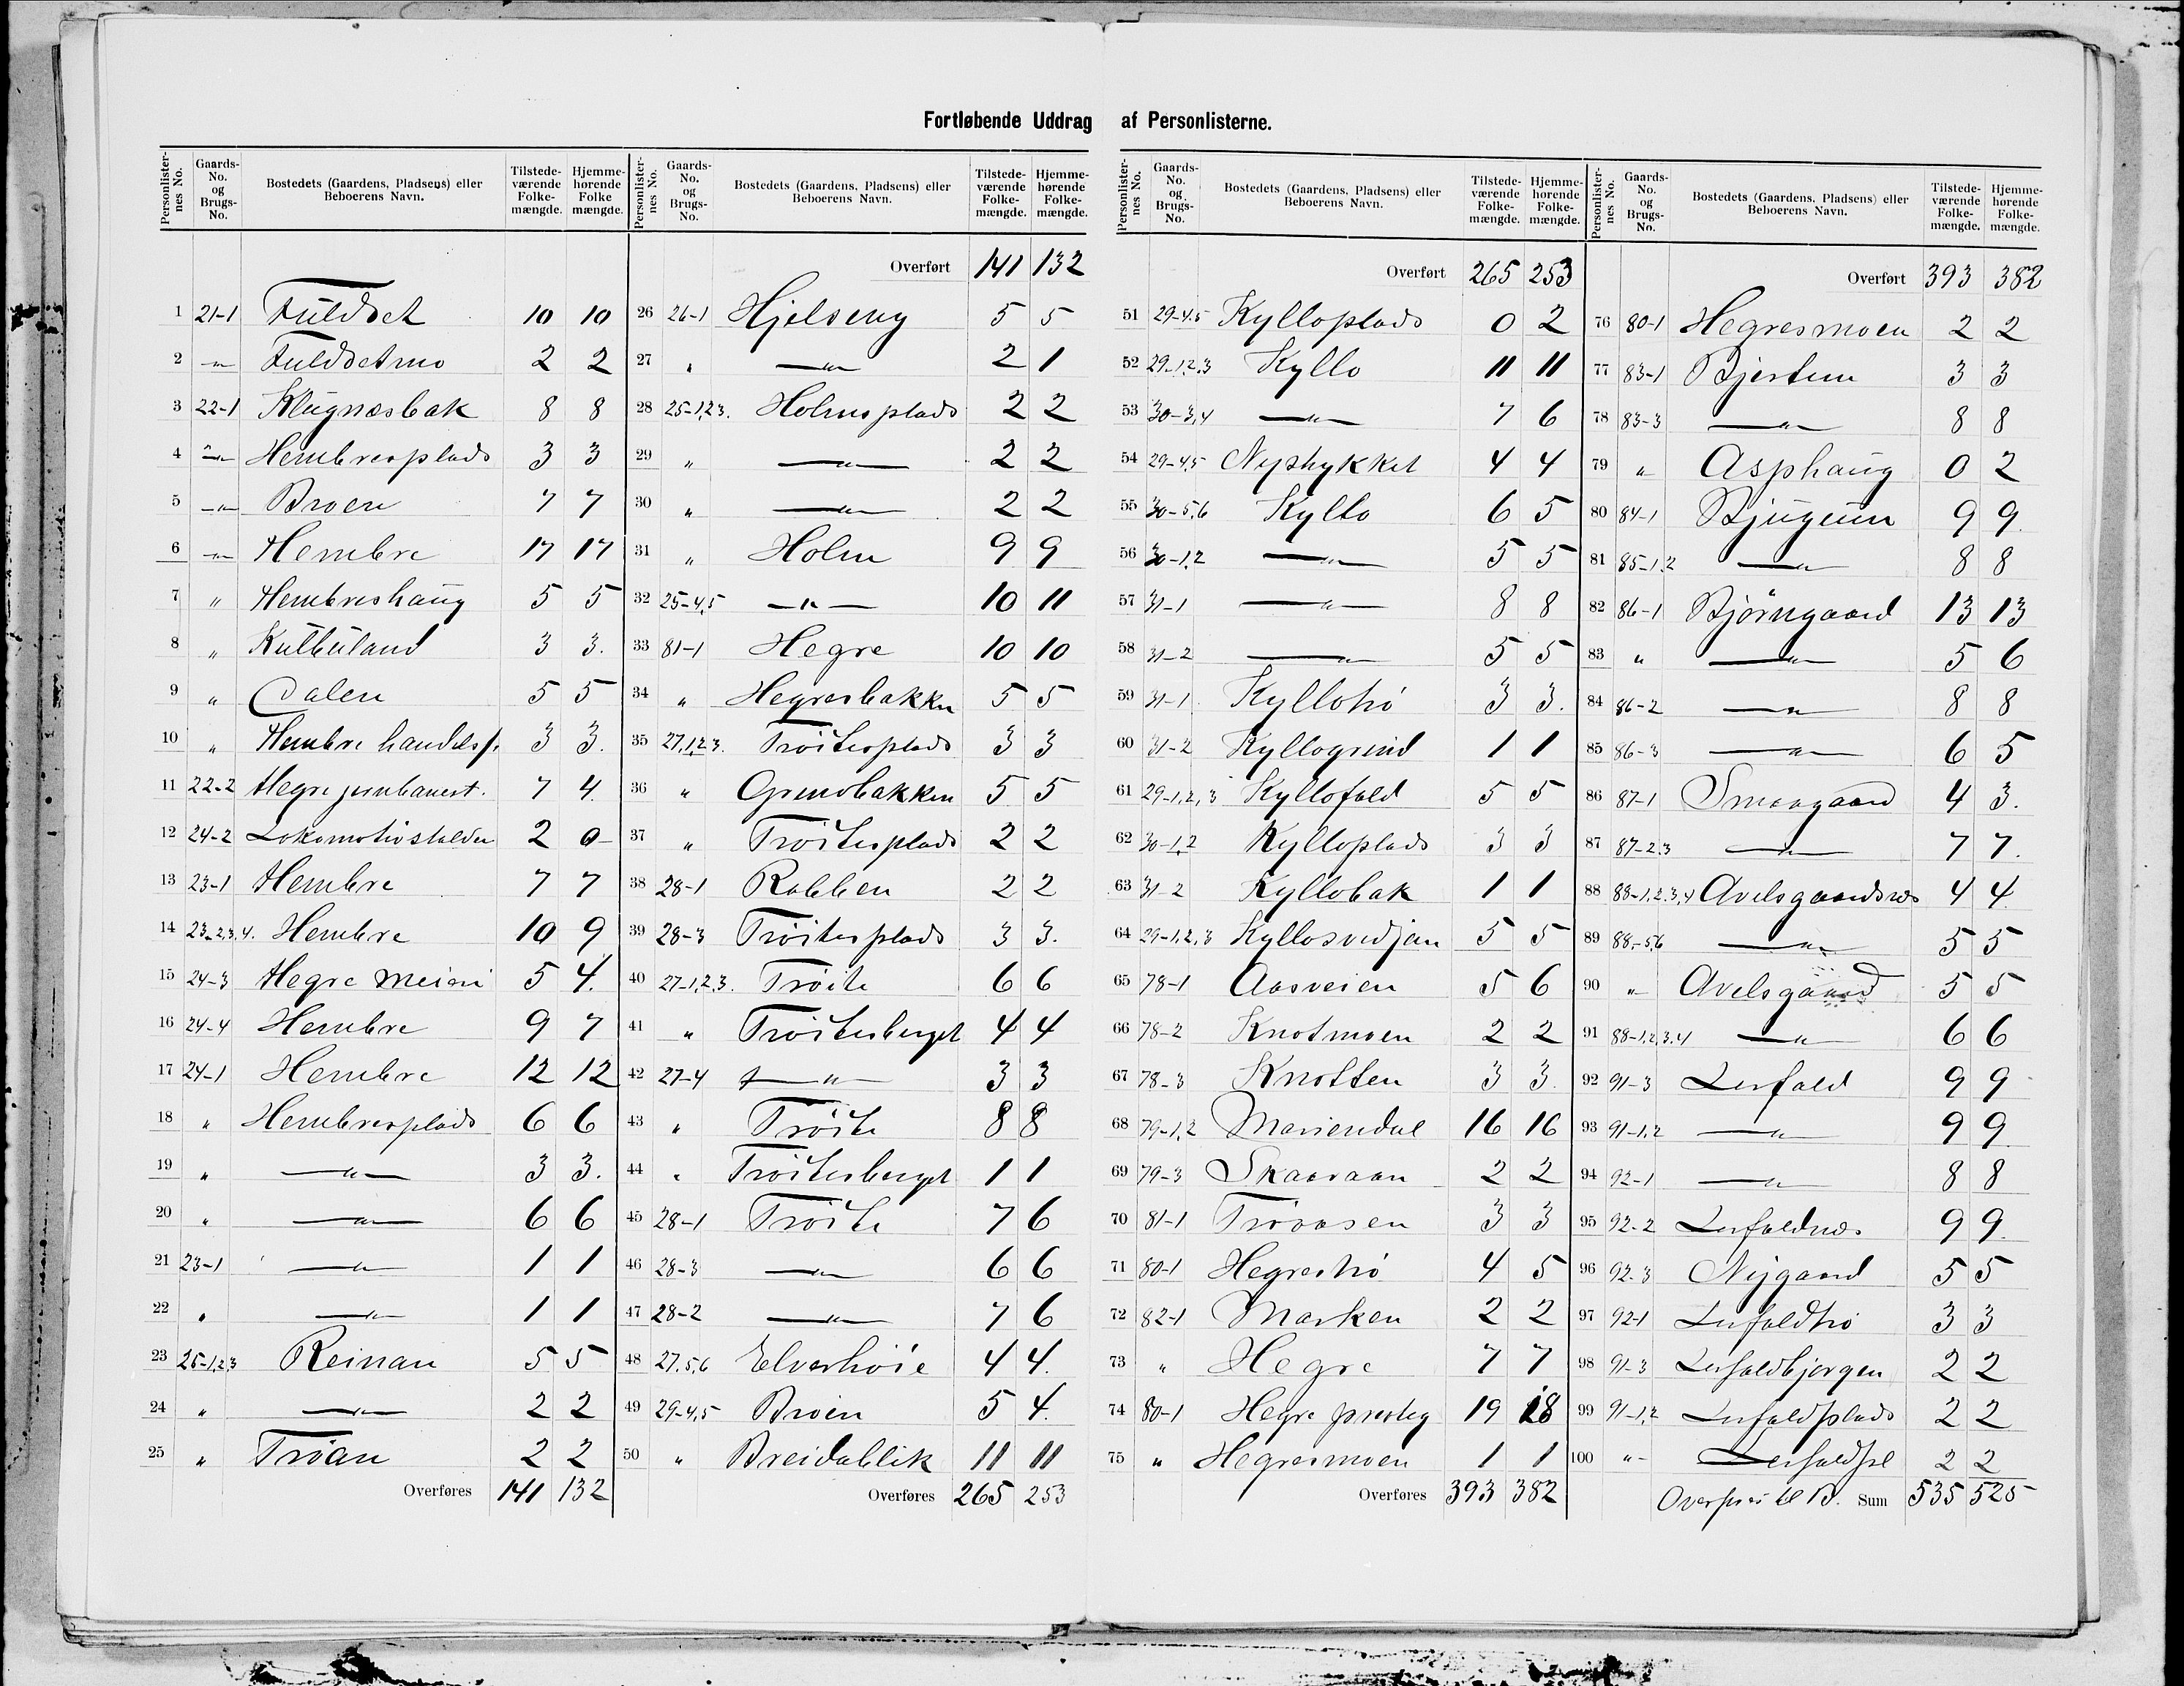 Fortløbende Uddrag af Personlisterne.
Personlisternes No. Gaards-No. og Brugs-No. Bostedets (Gaardens, Pladsens) eller Beboerens Navn. Tilstedeværende Folkemængde. Hjemmehørende Folkemængde.
1 21-1 Fuldset 10 10
2 -"- Fuldsetmo 2 2
3 22-1 Klugnæsbak 8 8
4 -"- Hembresplads 3 3
5 -"- Broen 7 7
6 -"- Hembre 17 17
7 " Hembreshaug 5 5
8 " Kulbuland 3 3.
9 " Dalen 5 5
10 " Hembre handelsf. 3 3.
11 22-2 Hegre jernbanest. 7 4
12 24-2 Lokomotivstalden 2 0
13 23-1 Hembre 7 7
14 23-2,3,4. Hembre 10 9
15 24-3 Hegre Meieri 5 4.
16 24-4 Hembre 9 7
17 24-1 Hembre 12 12
18 " Hembresplads 6 6
19 " -"- 3 3.
20 " -"- 6 6
21 23-1 -"- 1 1
22 " -"- 1 1
23 25-1,2,3 Reinan 5 5
24 " -"- 2 2
25 " Trøan 2 2
Overføres 141 132
Overført 141 132
26 26-1 Hjelseng 5 5
27 " -"- 2 1
28 25-1,2,3. Holmsplads 2 2
29 " -"- 2 2
30 " -"- 2 2
31 " Holm 9 9
32 25-4,5 -"- 10 11
33 81-1 Hegre 10 10
34 " Hegresbakken 5 5
35 27,1,2,3. Trøitesplads 3 3
36 " Grensbakken 5 5
37 " Trøitesplads 2 2
38 28-1 Rabben 2 2
39 28-3 Trøitesplads 3 3.
40 27-1,2,3. Trøite 6 6
41 " Trøitesberget 4 4
42 27-4 -"- 3 3
43 " Trøite 8 8
44 " Trøitesberget 1 1
45 28-1 Trøite 7 6
46 28-3 -"- 6 6
47 28-2 -"- 7 6
48 27.5,6 Elverhöie 4 4.
49 29-4,5 Broen 5 4.
50 " Breidablik 11 11
Overføres 265 253
Overført 265 253
51 29-4.5 Kylloplads 0 2
52 29-1,2,3 Kyllo 11 11
53 30-3,4 -"- 7 6
54 29-4,5 Nyphykket 4 4
55 30-5,6 Kyllo 6 5
56 30-1,2 -"- 5 5
57 31-1 -"- 8 8
58 31-2 -"- 5 5
59 31-1 Kyllotrø 3 3.
60 31-2 Kyllogrind 1 1
61 29-1,2,3 Kyllofald 5 5
62 30-1,2 Kylloplads 3 3
63 31-2 Kyllobak 1 1
64 29-1,2,3 Kyllosvedjan 5 5
65 78-1 Aasveien 5 6
66 78-2 Knotmoen 2 2
67 78-3 Knotten 3 3.
68 79-1,2 Mariendal 16 16
69 79-3 Skaaraan 2 2
70 81-1 Trøaasen 3 3
71 80-1 Hegrestrø 4 5
72 82-1 Marken 2 2
73 " Hegre 7 7
74 80-1 Hegre presteg 19 18
75 " Hegresmoen 1 1
Overføres 393 382
Overført 393 382
76 80-1 Hegresmoen 2 2
77 83-1 Bjertem 3 3
78 83-3 -"- 8 8
79 " Asphaug 0 2
80 84-1 Bjugeim 9 9.
81 85-1,2 -"- 8 8
82 86-1 Bjørngaard 13 13
83 " -"- 5 6
84 86-2 -"- 8 8
85 86-3 -"- 6 5
86 87-1 Smaagaard 4 3.
87 87-2.3 -"- 7 7.
88 88-1,2.3,4 Avelsgaardsnæs 4 4
89 88,-5,6 -"- 5 5
90 " Avelsgaard 5 5
91 88-1,2,3.4 -"- 6 6
92 91-3 Lerfald 9 9
93 91-1,2 -"- 9 9.
94 92-1 -"- 8 8
95 92-2 Lerfaldnæs 9 9.
96 92-3 Nygaard 5 5
97 92-1 Lerfaldtrø 3 3
98 91-3 Lerfaldbjergen 2 2
99 91-1,2 Lerfaldplads 2 2
100 "- Lerfaldpl 2 2
Overføres til B. Sum 535 525